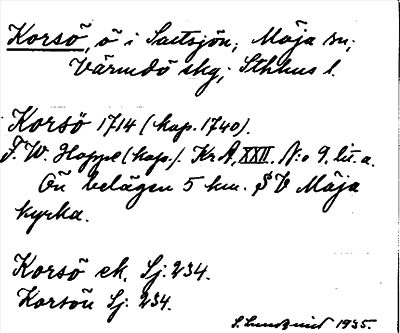 Korsö, ö i Saltsjön; Möja sn;
Värmdö skg; Sthlms l.
Korsö 1714 (kop. 1740).
F. W. Hoppe (kop.). Kr A, XXII. N:o 9. lit. a.
Ön belägen 5 km. SV Möja
kyrka.
Korsö ek. Sj: 234.
Korsön Sj: 234.
S. Lundqvist 1935.